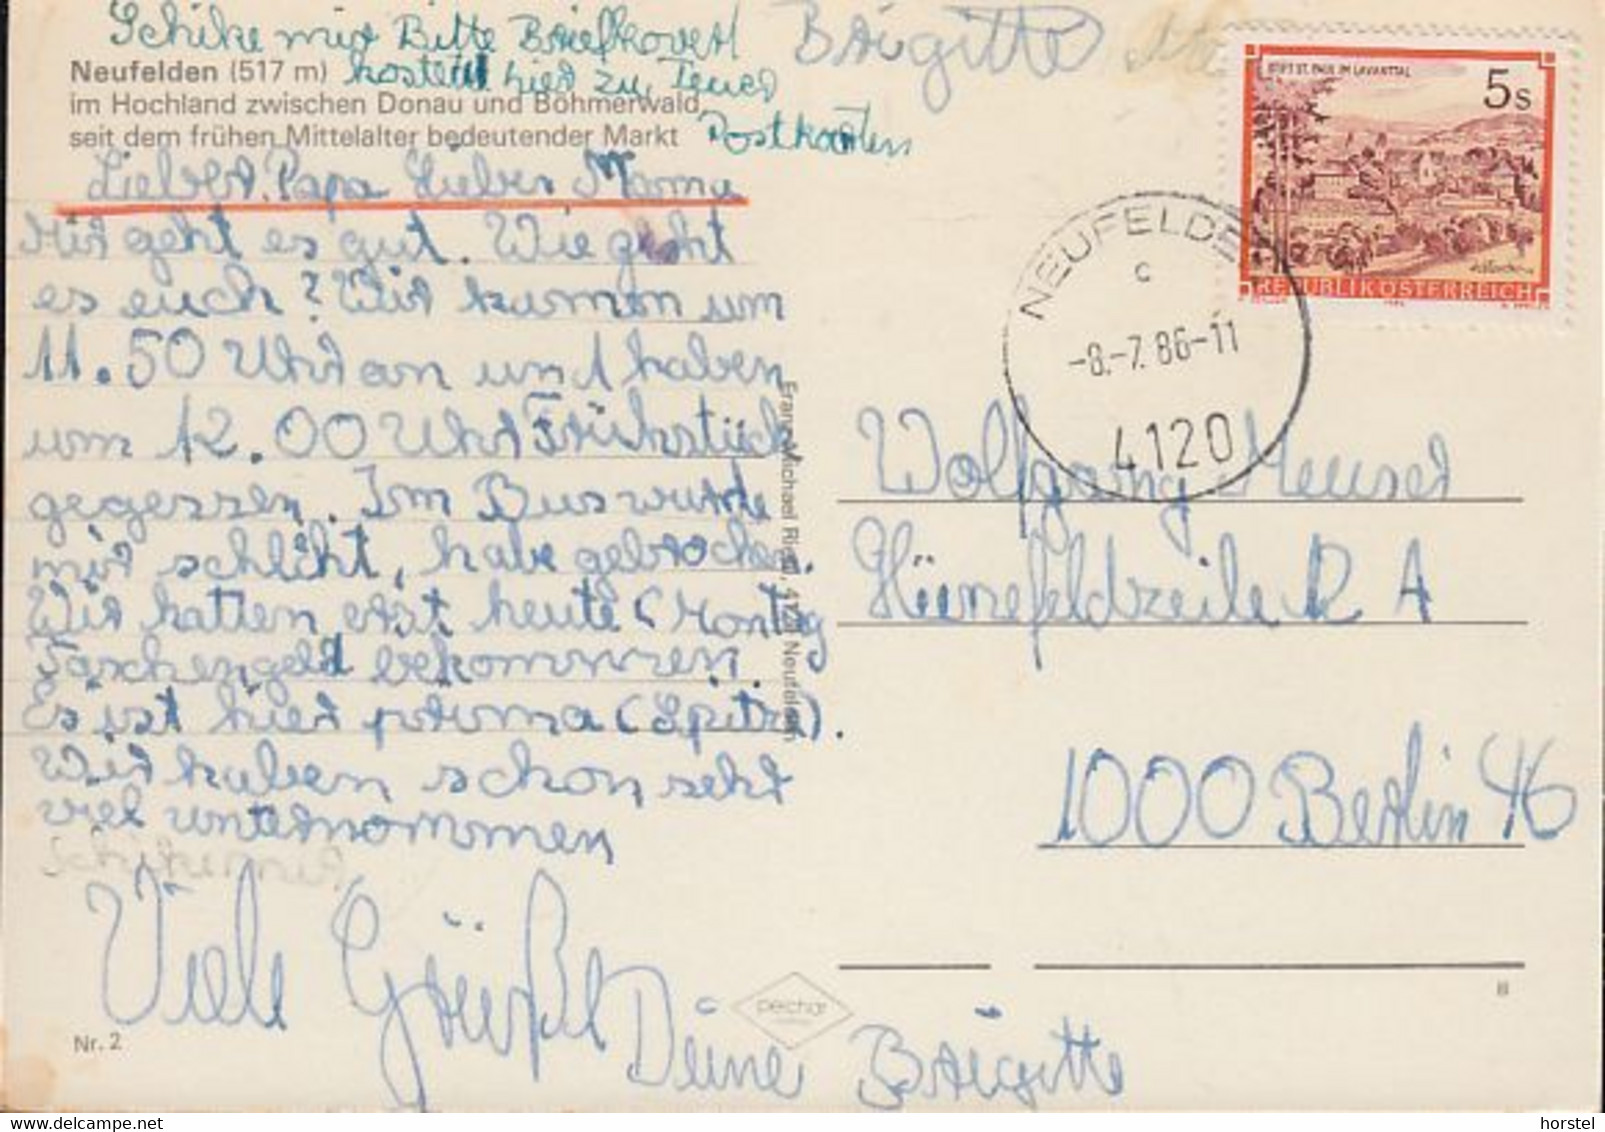 Schike mir Bitte Briefkovert Brigitte
Neufelden (517 m) kosten hier zu Teuer
im Hochland zwischen Donau und Böhmerwald,
seit dem frühen Mittelalter bedeutender Markt Postkarten
Lieber Papa Liebe Mama
Mir geht es gut. Wie geht
es euch? Wir kamen um
11.50 Uhr an und haben
um 12.00 Uhr Frühstück
gegessen. Im Bus wurde
mir schlecht, habe gebrochen.
Wir hatten erst heute (Montag
Taschengeld bekommen.
Es ist hier prima (Spitze).
Wir haben schon sehr
viel unternommen
Schike mir
Viele Grüße
Deine Brigitte
Nr. 2
pechar
Franz Michael Riedl, 4120 Neufelden
STIFT ST. PAUL IM LAVANTTAL
5s
REPUBLIK ÖSTERREICH
NEUFELDEN
c
-8.-7.86-11
4120
Wolfgang Meuser
Hünefeldzeile 12 A
1000 Berlin 46
horstel
www.delcampe.net